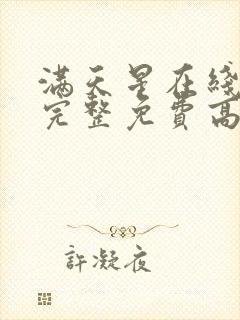 满天星在綫
完整免費高
許凝夜